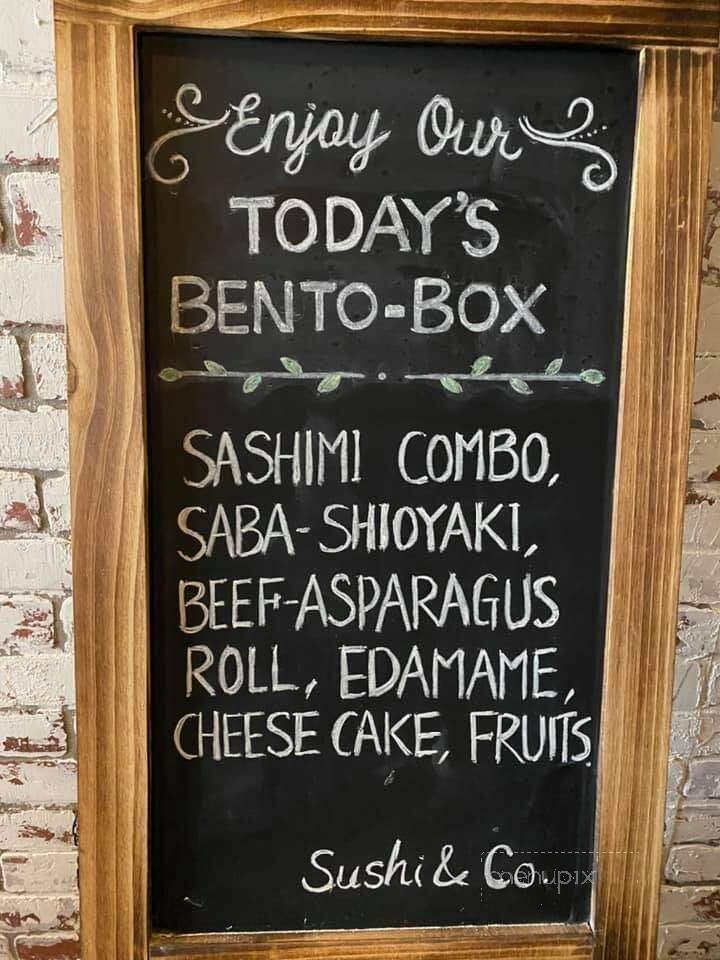 Enjoy Our
TODAY'S
BENTO-BOX
SASHIMI COMBO,
SABA-SHIOYAKI,
BEEF-ASPARAGUS
ROLL, EDAMAME,
CHEESE CAKE, FRUITS.
Sushi & Co.
menupix